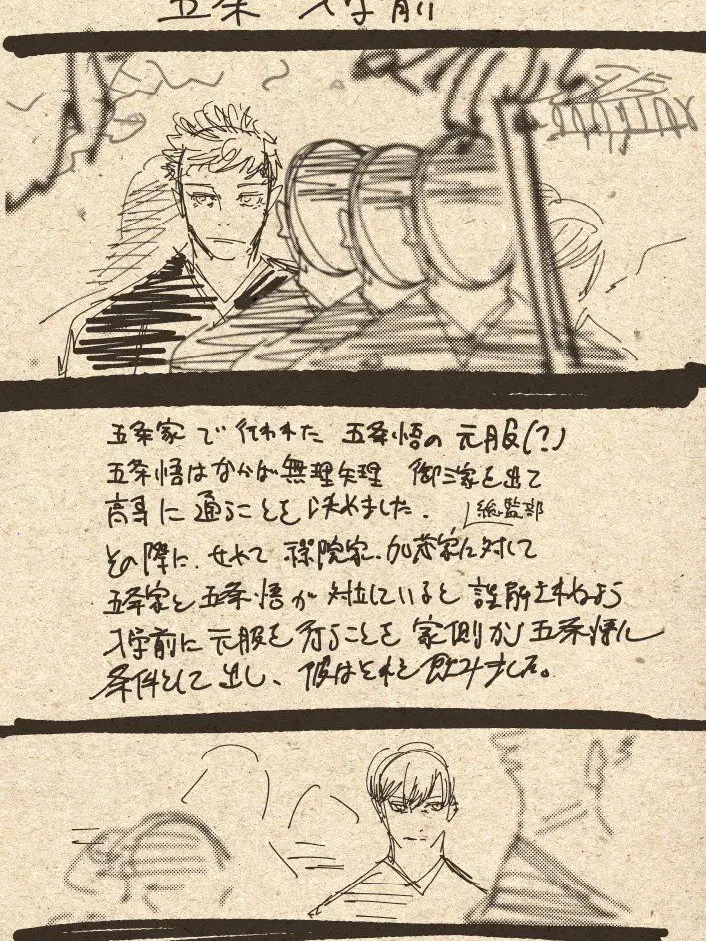 五条 入学前
五条家で行われた 五条悟の元服(?)
五条悟はなかば無理矢理 御三家を出て
高専に通うことを決めました.
総監部
その際に、せめて 禪院家、加茂家に対して
五条家と五条悟が対立していると誤解されぬよう
入学前に元服を行うことを家側が五条悟に
条件として出し、彼はそれを飲みました。